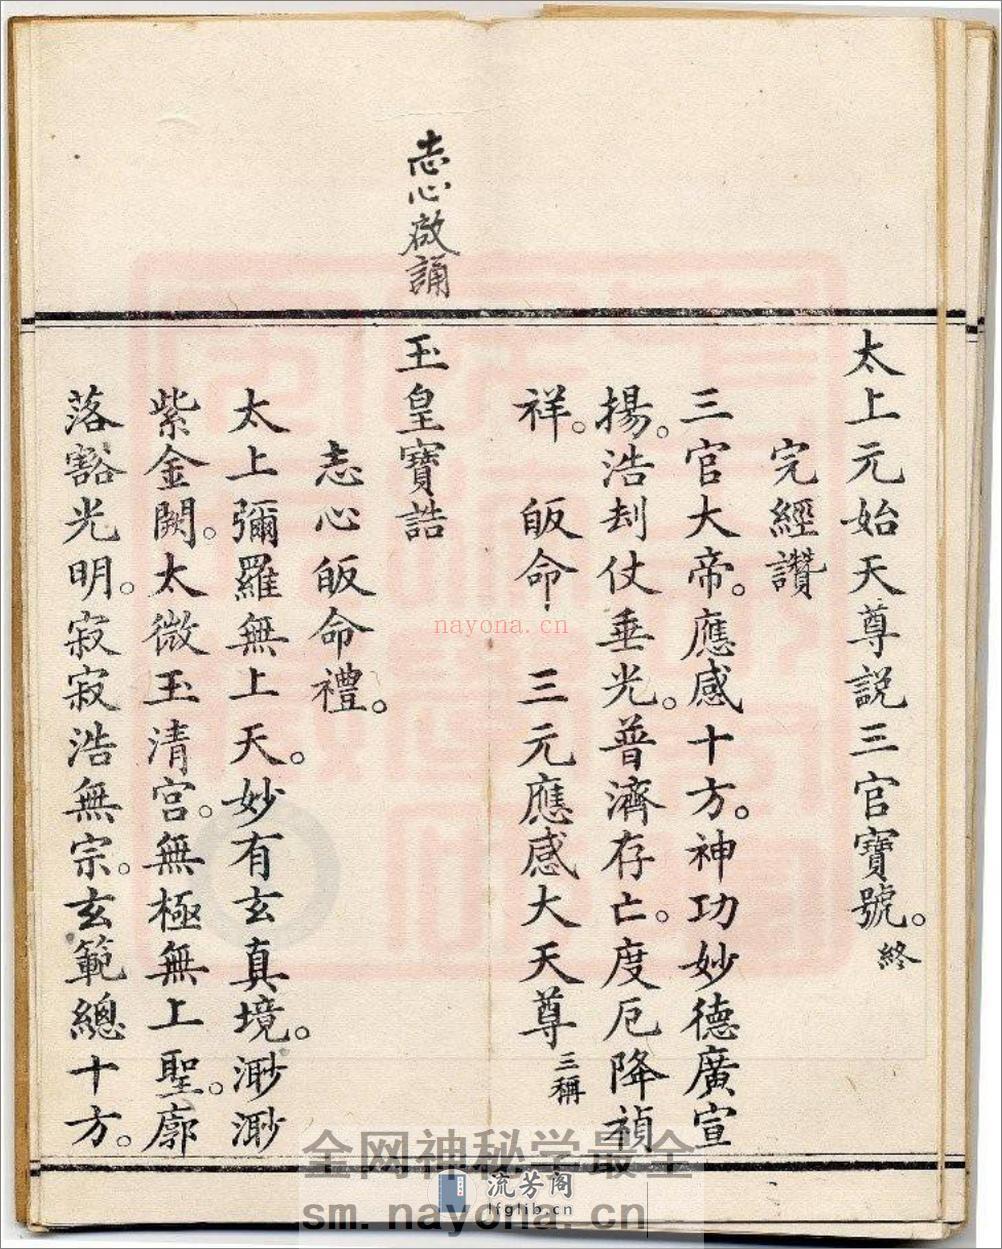 太上元始天尊説三官寶號。終
完經讚
三官大帝。應感十方。神功妙德廣宣
揚。浩刦仗垂光。普濟存亡。度厄降禎
祥。皈命 三元應感大天尊三稱
志心啟誦
玉皇寶誥
志心皈命禮。
太上彌羅無上天。妙有玄真境。渺渺
紫金闕。太微玉清宫。無極無上聖。廓
落豁光明。寂寂浩無宗。玄範總十方。
nayona.cn
金网神秘学最全
流芳阁
lfglib.cn
sm.nayona.cn